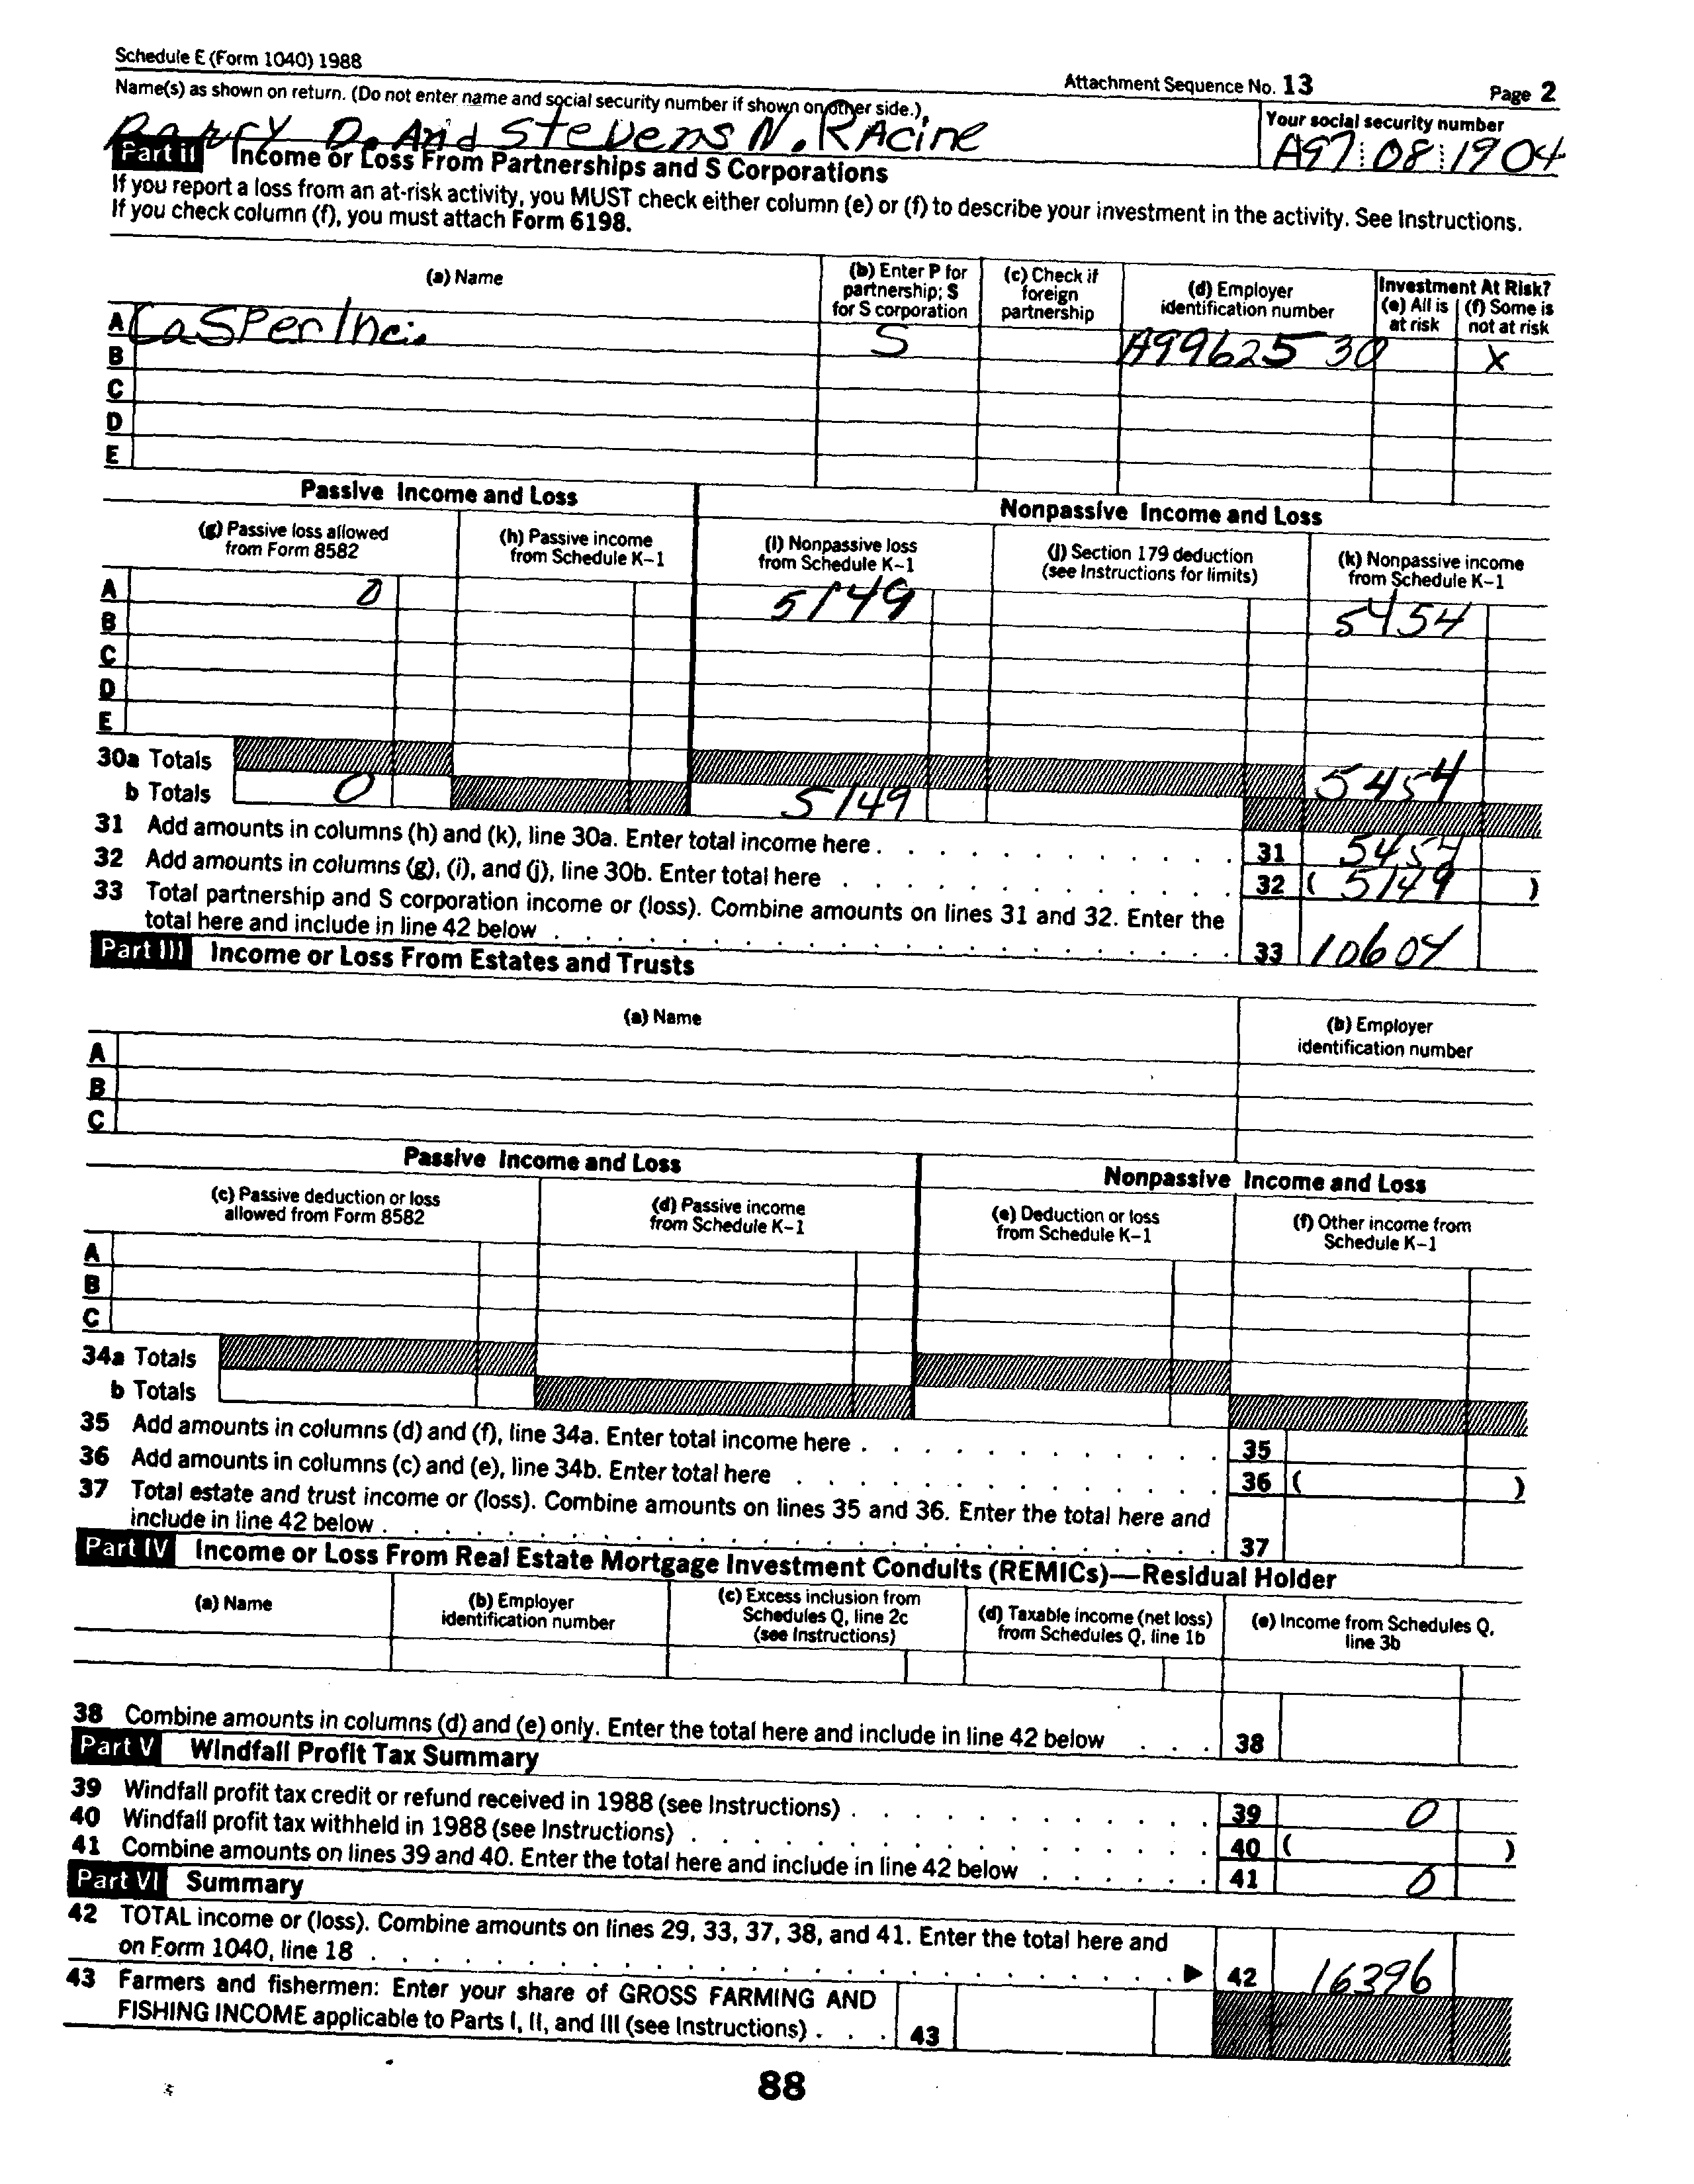 Schedule E (Form 1040) 1988
Attachment Sequence No. 13
Page 2
Name(s) as shown on return. (Do not enter name and social security number if shown on other side.)
Your social security number
Barry D. And Stevens N. Racine
A97 08 1904
Part II Income or Loss From Partnerships and S Corporations
If you report a loss from an at-risk activity, you MUST check either column (e) or (f) to describe your investment in the activity. See Instructions.
If you check column (f), you must attach Form 6198.
(a) Name
(b) Enter P for partnership; S for S corporation
(c) Check if foreign partnership
(d) Employer identification number
Investment At Risk?
(e) All is at risk
(f) Some is not at risk
A CaSPer Inc. S A99625 30 X
B
C
D
E
Passive Income and Loss
Nonpassive Income and Loss
(g) Passive loss allowed from Form 8582
(h) Passive income from Schedule K-1
(i) Nonpassive loss from Schedule K-1
(j) Section 179 deduction (see Instructions for limits)
(k) Nonpassive income from Schedule K-1
A 0 5149 5454
B
C
D
E
30a Totals 5454
b Totals 0 5149
31 Add amounts in columns (h) and (k), line 30a. Enter total income here . 31 5454
32 Add amounts in columns (g), (i), and (j), line 30b. Enter total here . 32 ( 5149 )
33 Total partnership and S corporation income or (loss). Combine amounts on lines 31 and 32. Enter the
total here and include in line 42 below . 33 10604
Part III Income or Loss From Estates and Trusts
(a) Name
(b) Employer identification number
A
B
C
Passive Income and Loss
Nonpassive Income and Loss
(c) Passive deduction or loss allowed from Form 8582
(d) Passive income from Schedule K-1
(e) Deduction or loss from Schedule K-1
(f) Other income from Schedule K-1
A
B
C
34a Totals
b Totals
35 Add amounts in columns (d) and (f), line 34a. Enter total income here . 35
36 Add amounts in columns (c) and (e), line 34b. Enter total here . 36 ( )
37 Total estate and trust income or (loss). Combine amounts on lines 35 and 36. Enter the total here and
include in line 42 below . 37
Part IV Income or Loss From Real Estate Mortgage Investment Conduits (REMICs)—Residual Holder
(a) Name
(b) Employer identification number
(c) Excess inclusion from Schedules Q, line 2c (see Instructions)
(d) Taxable income (net loss) from Schedules Q, line 1b
(e) Income from Schedules Q, line 3b
38 Combine amounts in columns (d) and (e) only. Enter the total here and include in line 42 below . . . 38
Part V Windfall Profit Tax Summary
39 Windfall profit tax credit or refund received in 1988 (see Instructions) . 39 0
40 Windfall profit tax withheld in 1988 (see Instructions) . 40 ( )
41 Combine amounts on lines 39 and 40. Enter the total here and include in line 42 below . 41 0
Part VI Summary
42 TOTAL income or (loss). Combine amounts on lines 29, 33, 37, 38, and 41. Enter the total here and
on Form 1040, line 18 . ▶ 42 16396
43 Farmers and fishermen: Enter your share of GROSS FARMING AND
FISHING INCOME applicable to Parts I, II, and III (see Instructions) . . . 43
88